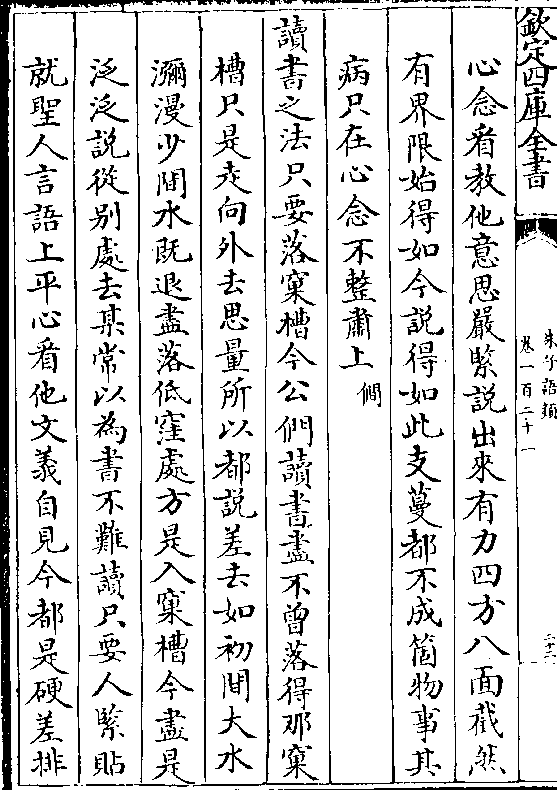 欽定四庫全書
朱子語類
卷一百二十一
心念看教他意思嚴緊說出來有力四方八面截然
有界限始得如今說得如此支蔓都不成箇物事其
病只在心念不整肅上僩
讀書之法只要落窠槽今公們讀書盡不曾落得那窠
槽只是走向外去思量所以都說差去如初間大水
瀰漫少間水既退盡落低窪處方是入窠槽今盡是
泛泛說從別處去某常以為書不難讀只要人緊貼
就聖人言語上平心看他文義自見今都是硬差排